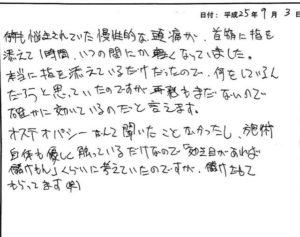 日付：平成25年9月3日
何年も悩まされていた慢性的な頭痛が、首筋に指を
添えて1時間、いつの間にか軽くなっていました。
本当に指を添えているだけだったので、何をしているん
だろうと思っていたのですが再発もまだないので
確かに効いているのだと言えます。
オステオパシーなんて聞いたことなかったし、施術
自体も優しく触っているだけなので「効き目があれば
儲けもん」くらいに考えていたのですが、儲けさせて
もらってます(笑)